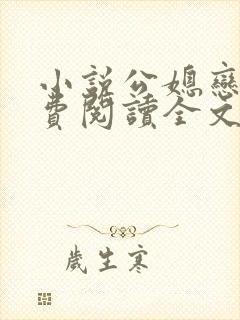 小說公媳戀
費閱讀全文
歲生寒